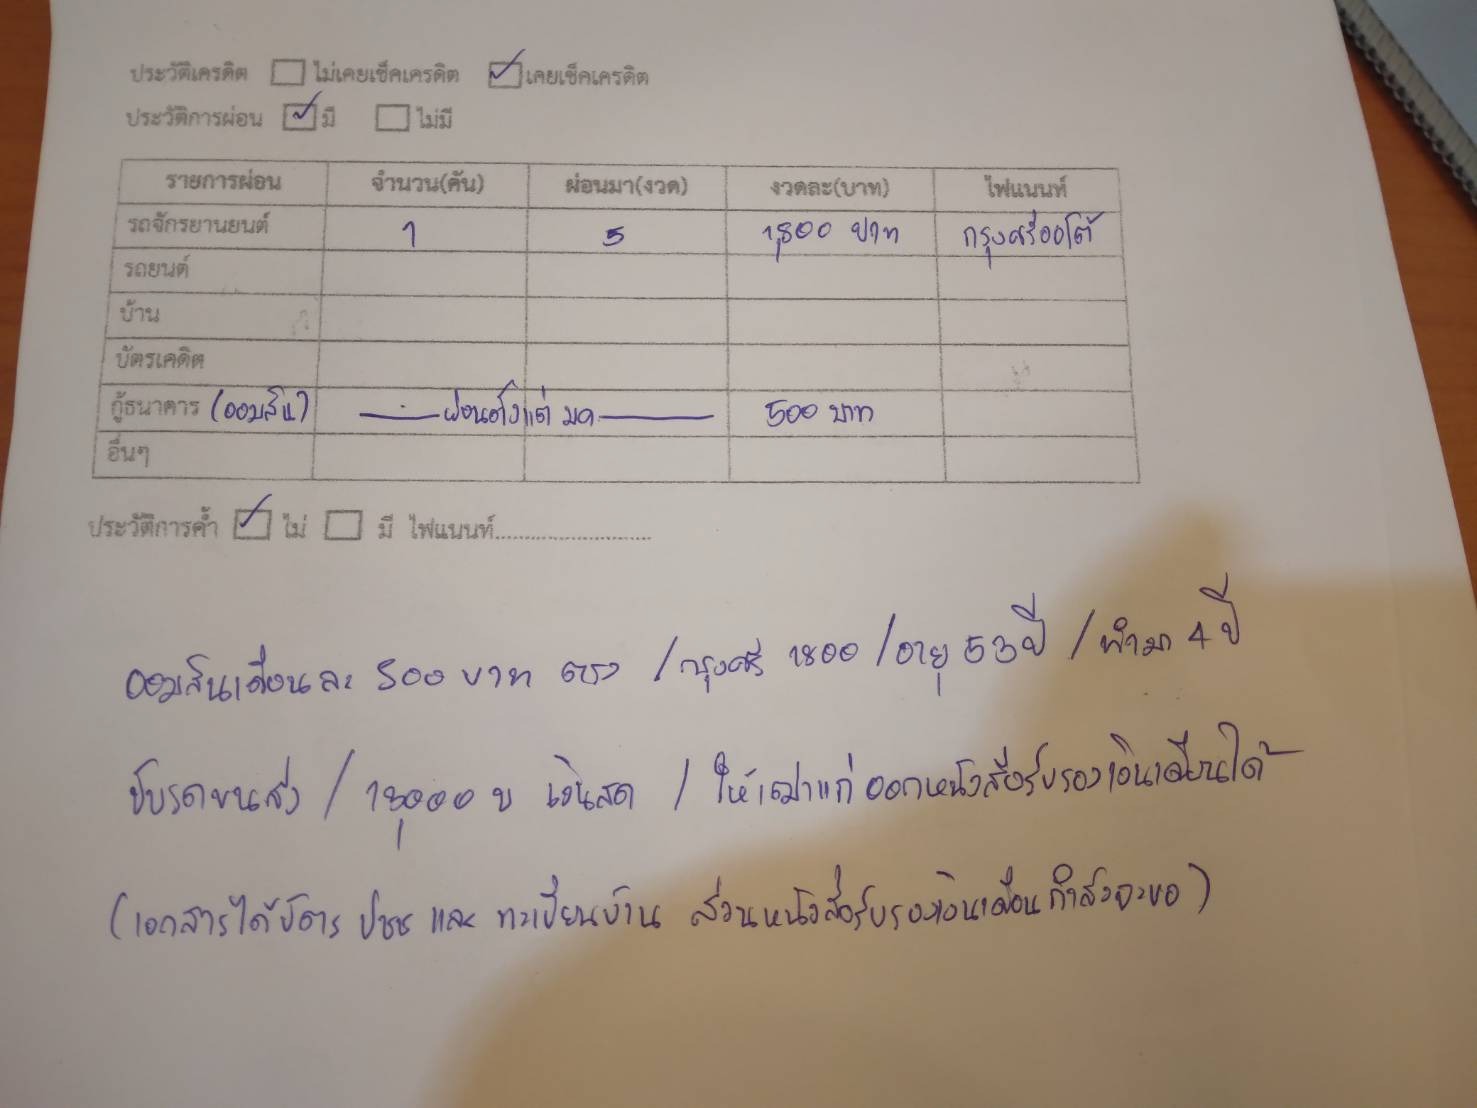 ประวัติเครดิต ไม่เคยเช็คเครดิต เคยเช็คเครดิต
ประวัติการผ่อน มี ไม่มี
รายการผ่อน จำนวน(คัน) ผ่อนมา(งวด) งวดละ(บาท) ไฟแนนท์
รถจักรยานยนต์ 1 5 1,800 บาท กรุงศรีออโต้
รถยนต์
บ้าน
บัตรเคดิต
กู้ธนาคาร (ออมสิน) ผ่อนตั้งแต่ มค 500 บาท
อื่นๆ
ประวัติการค้ำ ไม่ มี ไฟแนนท์..........................
ออมสินเดือนละ 500 บาท ตรง / กรุงศรี 1800 / อายุ 53 ปี / ทำมา 4 ปี
ขับรถขนส่ง / 18,000 บ เงินสด / ให้เฒ่าแก่ ออกหนังสือรับรองเงินเดือนได้
(เอกสารได้บัตร ปชช และ ทะเบียนบ้าน ส่วนหนังสือรับรองเงินเดือน กำลังจะขอ)